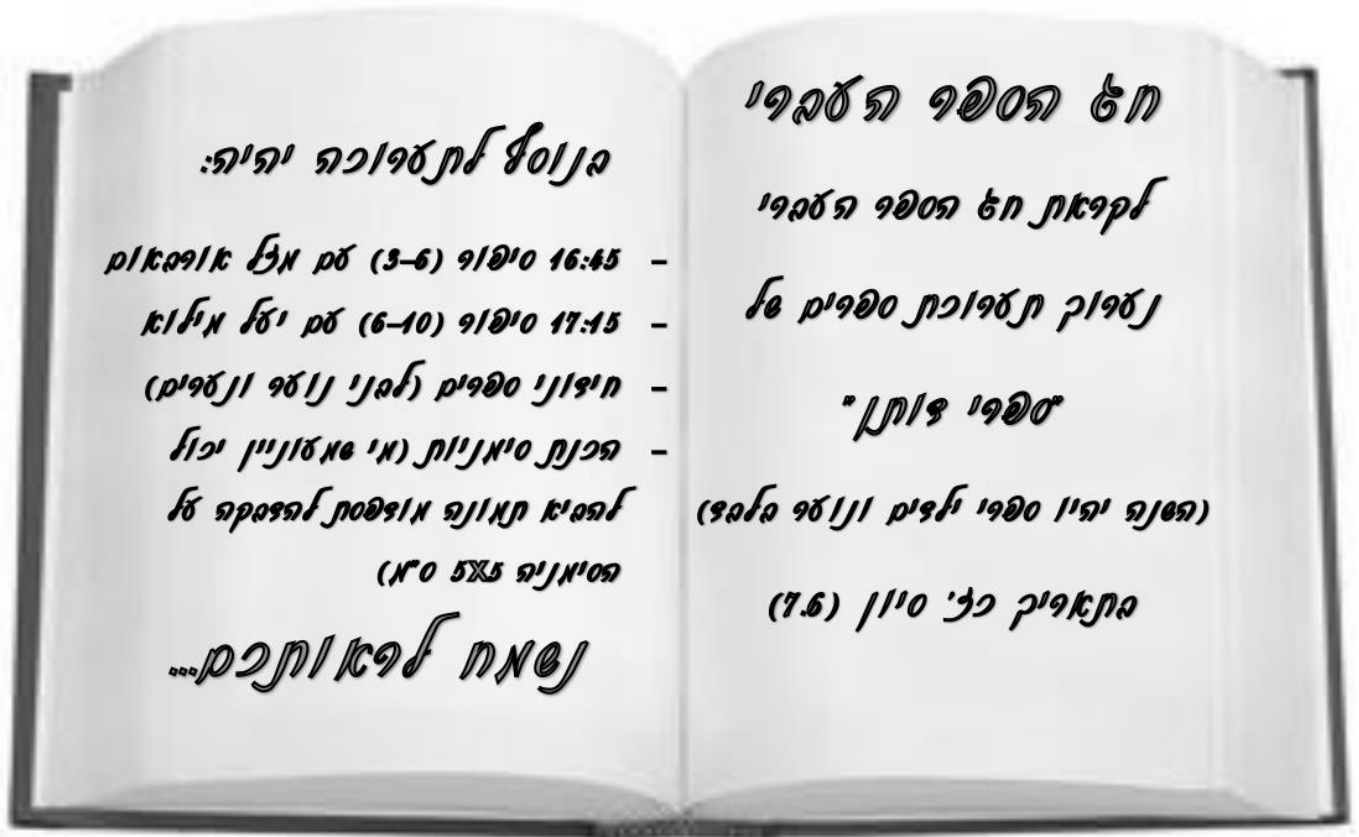 חג הספר העברי
לקראת חג הספר העברי
נערוך תערוכת ספרים של
"ספרי דותן"
(השנה יהיו ספרי ילדים ונוער בלבד)
בתאריך כז' סיון (7.6)
בנוסף לתערוכה יהיה:
- 16:45 סיפור (3-6) עם מזל אורבאום
- 17:15 סיפור (6-10) עם יעל מילוא
- חידוני ספרים (לבני נוער ונערים)
- הכנת סימניות (מי שמעוניין יכול
להביא תמונה מודפסת להדבקה על
הסימניה 5X5 ס"מ)
נשמח לראותכם...